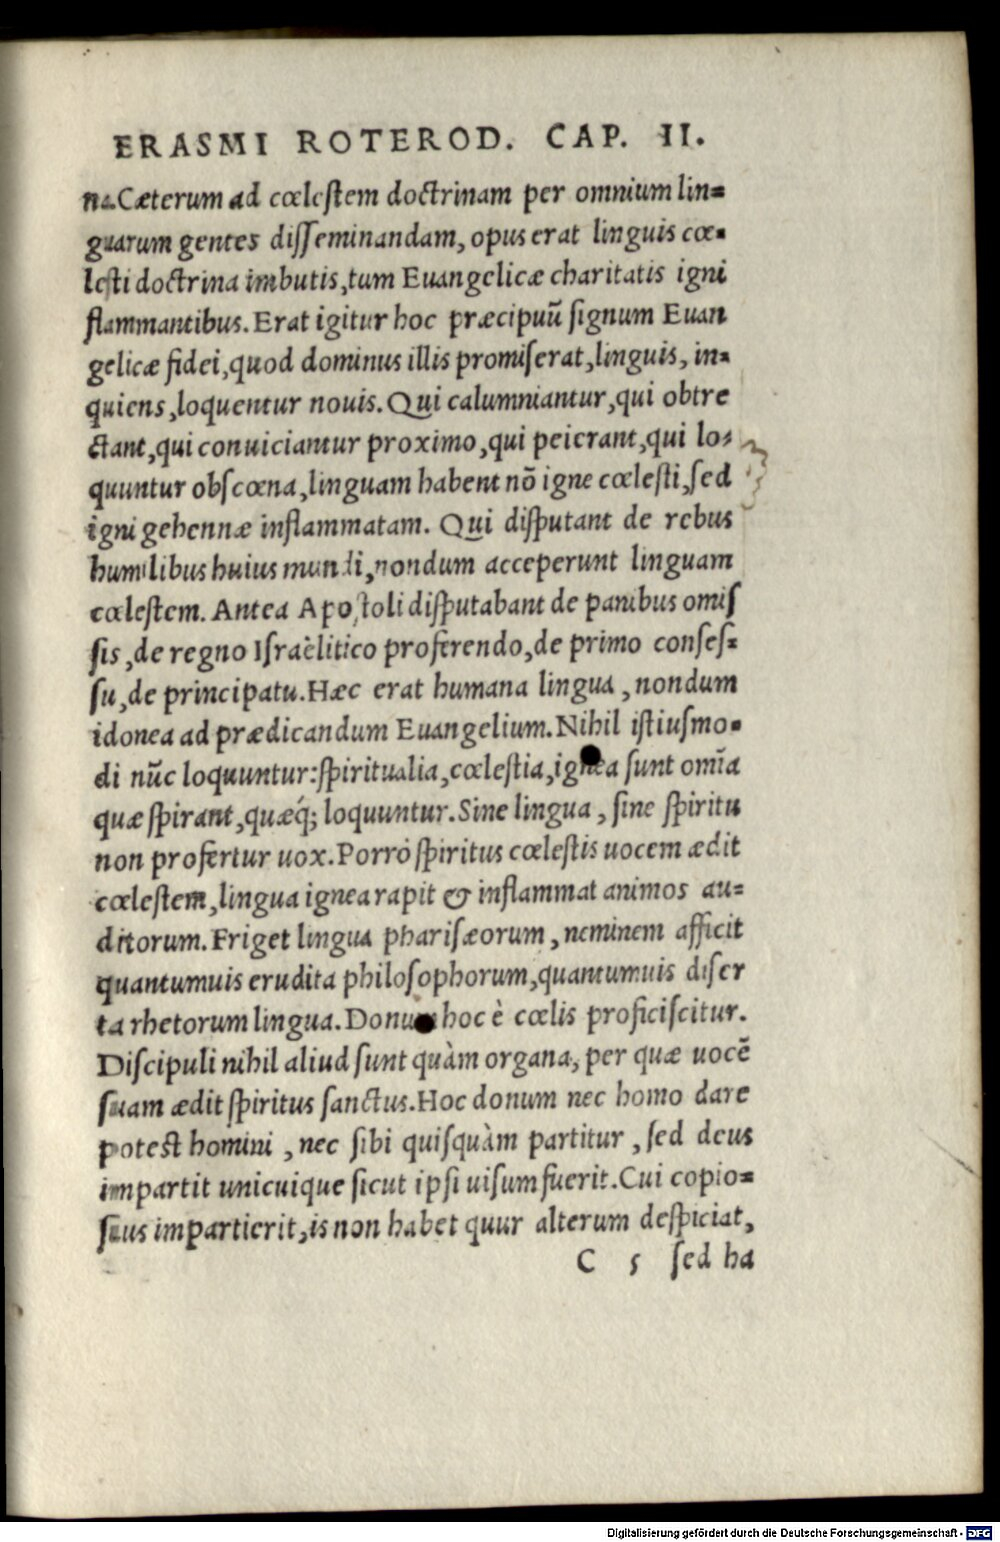 ERASMI ROTEROD. CAP. II.
na. Cæterum ad cœlestem doctrinam per omnium lin=
guarum gentes disseminandam, opus erat linguis cœ=
lesti doctrina imbutis, tum Euangelicæ charitatis igni
flammantibus. Erat igitur hoc præcipuũ signum Euan
gelicæ fidei, quod dominus illis promiserat, linguis, in=
quiens, loquentur nouis. Qui calumniantur, qui obtre
ctant, qui conuiciantur proximo, qui peierant, qui lo=
quuntur obscœna, linguam habent nõ igne cœlesti, sed
igni gehennæ inflammatam. Qui disputant de rebus
humilibus huius mundi, nondum acceperunt linguam
cœlestem. Antea Apostoli disputabant de panibus omis
sis, de regno Israèlitico proferendo, de primo conses=
su, de principatu. Hæc erat humana lingua, nondum
idonea ad prædicandum Euangelium. Nihil istiusmo=
di nũc loquuntur: spiritualia, cœlestia, ignea sunt omĩa
quæ spirant, quæq́; loquuntur. Sine lingua, sine spiritu
non profertur uox. Porrò spiritus cœlestis uocem ædit
cœlestem, lingua ignea rapit & inflammat animos au=
ditorum. Friget lingua pharisæorum, neminem afficit
quantumuis erudita philosophorum, quantumuis diser
ta rhetorum lingua. Donum hoc è cœlis proficiscitur.
Discipuli nihil aliud sunt quàm organa, per quæ uocẽ
suam ædit spiritus sanctus. Hoc donum nec homo dare
potest homini, nec sibi quisquàm partitur, sed deus
impartit unicuique sicut ipsi uisum fuerit. Cui copio=
sius impartierit, is non habet quur alterum despiciat,
C 5 sed ha
Digitalisierung gefördert durch die Deutsche Forschungsgemeinschaft - DFG